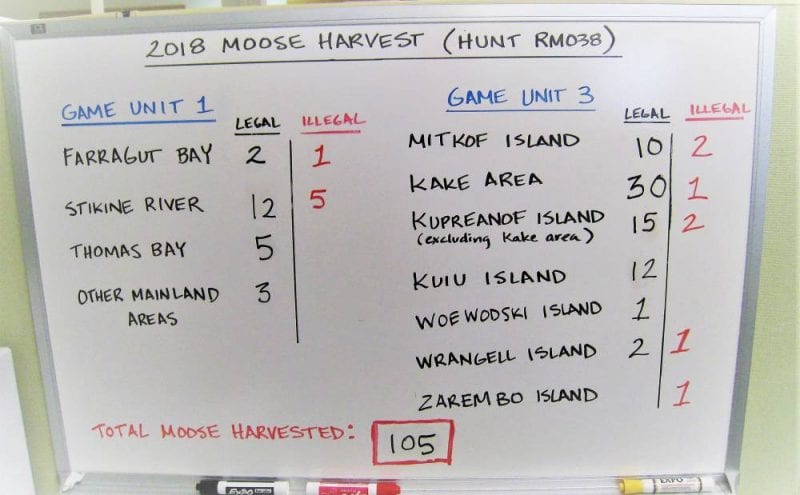 2018 MOOSE HARVEST (HUNT RM038)
GAME UNIT 1
LEGAL ILLEGAL
FARRAGUT BAY 2 1
STIKINE RIVER 12 5
THOMAS BAY 5
OTHER MAINLAND 3
AREAS
GAME UNIT 3
LEGAL ILLEGAL
MITKOF ISLAND 10 2
KAKE AREA 30 1
KUPREANOF ISLAND 15 2
(excluding Kake area)
KUIU ISLAND 12
WOEWODSKI ISLAND 1
WRANGELL ISLAND 2 1
ZAREMBO ISLAND 1
TOTAL MOOSE HARVESTED: 105
EXPO
EXPO